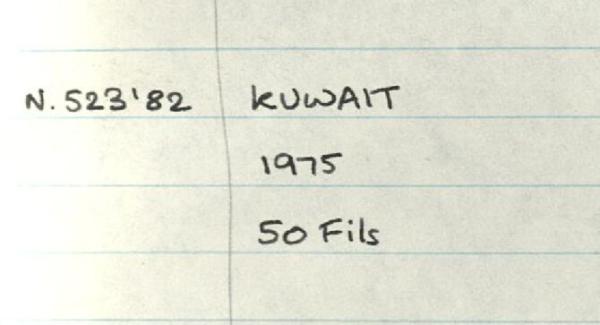 N.523'82 KUWAIT
1975
50 Fils